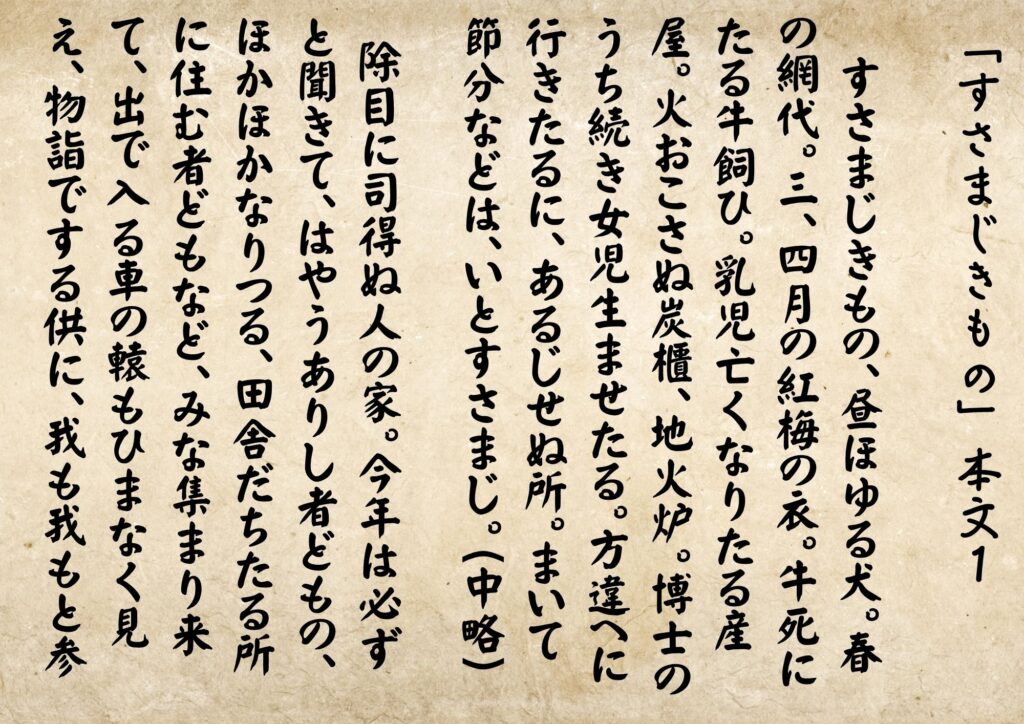 「すさまじきもの」本文1
すさまじきもの、昼ほゆる犬。春
の網代。三、四月の紅梅の衣。牛死に
たる牛飼ひ。乳児亡くなりたる産
屋。火おこさぬ炭櫃、地火炉。博士の
うち続き女児生ませたる。方違へに
行きたるに、あるじせぬ所。まいて
節分などは、いとすさまじ。(中略)
除目に司得ぬ人の家。今年は必ず
と聞きて、はやうありし者どもの、
ほかほかなりつる、田舎だちたる所
に住む者どもなど、みな集まり来
て、出で入る車の轅もひまなく見
え、物詣でする供に、我も我もと参